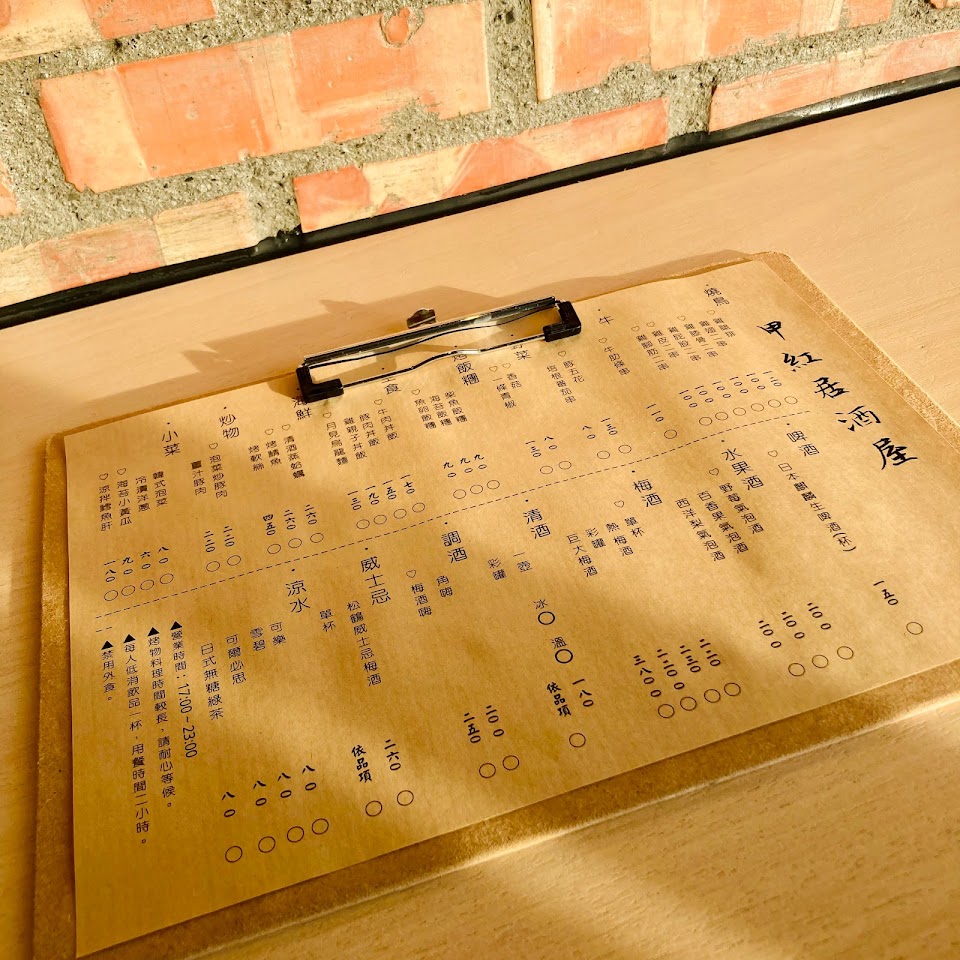 甲紅居酒屋
・燒鳥
♡雞皮二串
・牛
♡牛肋條串
♡豚五花
培根番茄串
菜
♡香菇
♡一條青椒
飯糰
柴魚飯糰 九〇
海苔飯糰 九〇
♡魚卵飯糰 九〇
食
♡牛肉丼飯 一七〇
豚肉丼飯 一五〇
雞親子丼飯 一九〇
♡月見烏龍麵 一三〇
海鮮
♡清酒蒸蛤蠣 二六〇
♡烤鯖魚 二六〇
烤軟絲 四五〇
・炒物
♡泡菜炒豚肉 二二〇
薑汁豚肉 二二〇
・小菜
韓式泡菜 八〇
冷漬洋蔥 六〇
♡海苔小黃瓜 九〇
♡涼拌鱈魚肝 一八〇
・啤酒
♡日本麒麟生啤酒(杯) 一五〇
・水果酒
野莓氣泡酒 二〇〇
♡百香果氣泡酒 二〇〇
西洋梨氣泡酒 二〇〇
・梅酒
♡單杯 二二〇
熱梅酒 二三〇
彩罐 二二〇
巨大梅酒 三八〇
・清酒
一壺 冰〇 溫〇 一八〇
彩罐 依品項
・調酒
角嗨 二〇〇
♡梅酒嗨 二五〇
・威士忌
松鶴威士忌梅酒 二六〇
單杯 依品項
・涼水
可樂 八〇
雪碧 八〇
可爾必思 八〇
日式無糖綠茶 八〇
▲營業時間：17:00~23:00
▲烤物料理時間較長，請耐心等候。
▲每人低消飲品一杯，用餐時間二小時。
▲禁用外食。